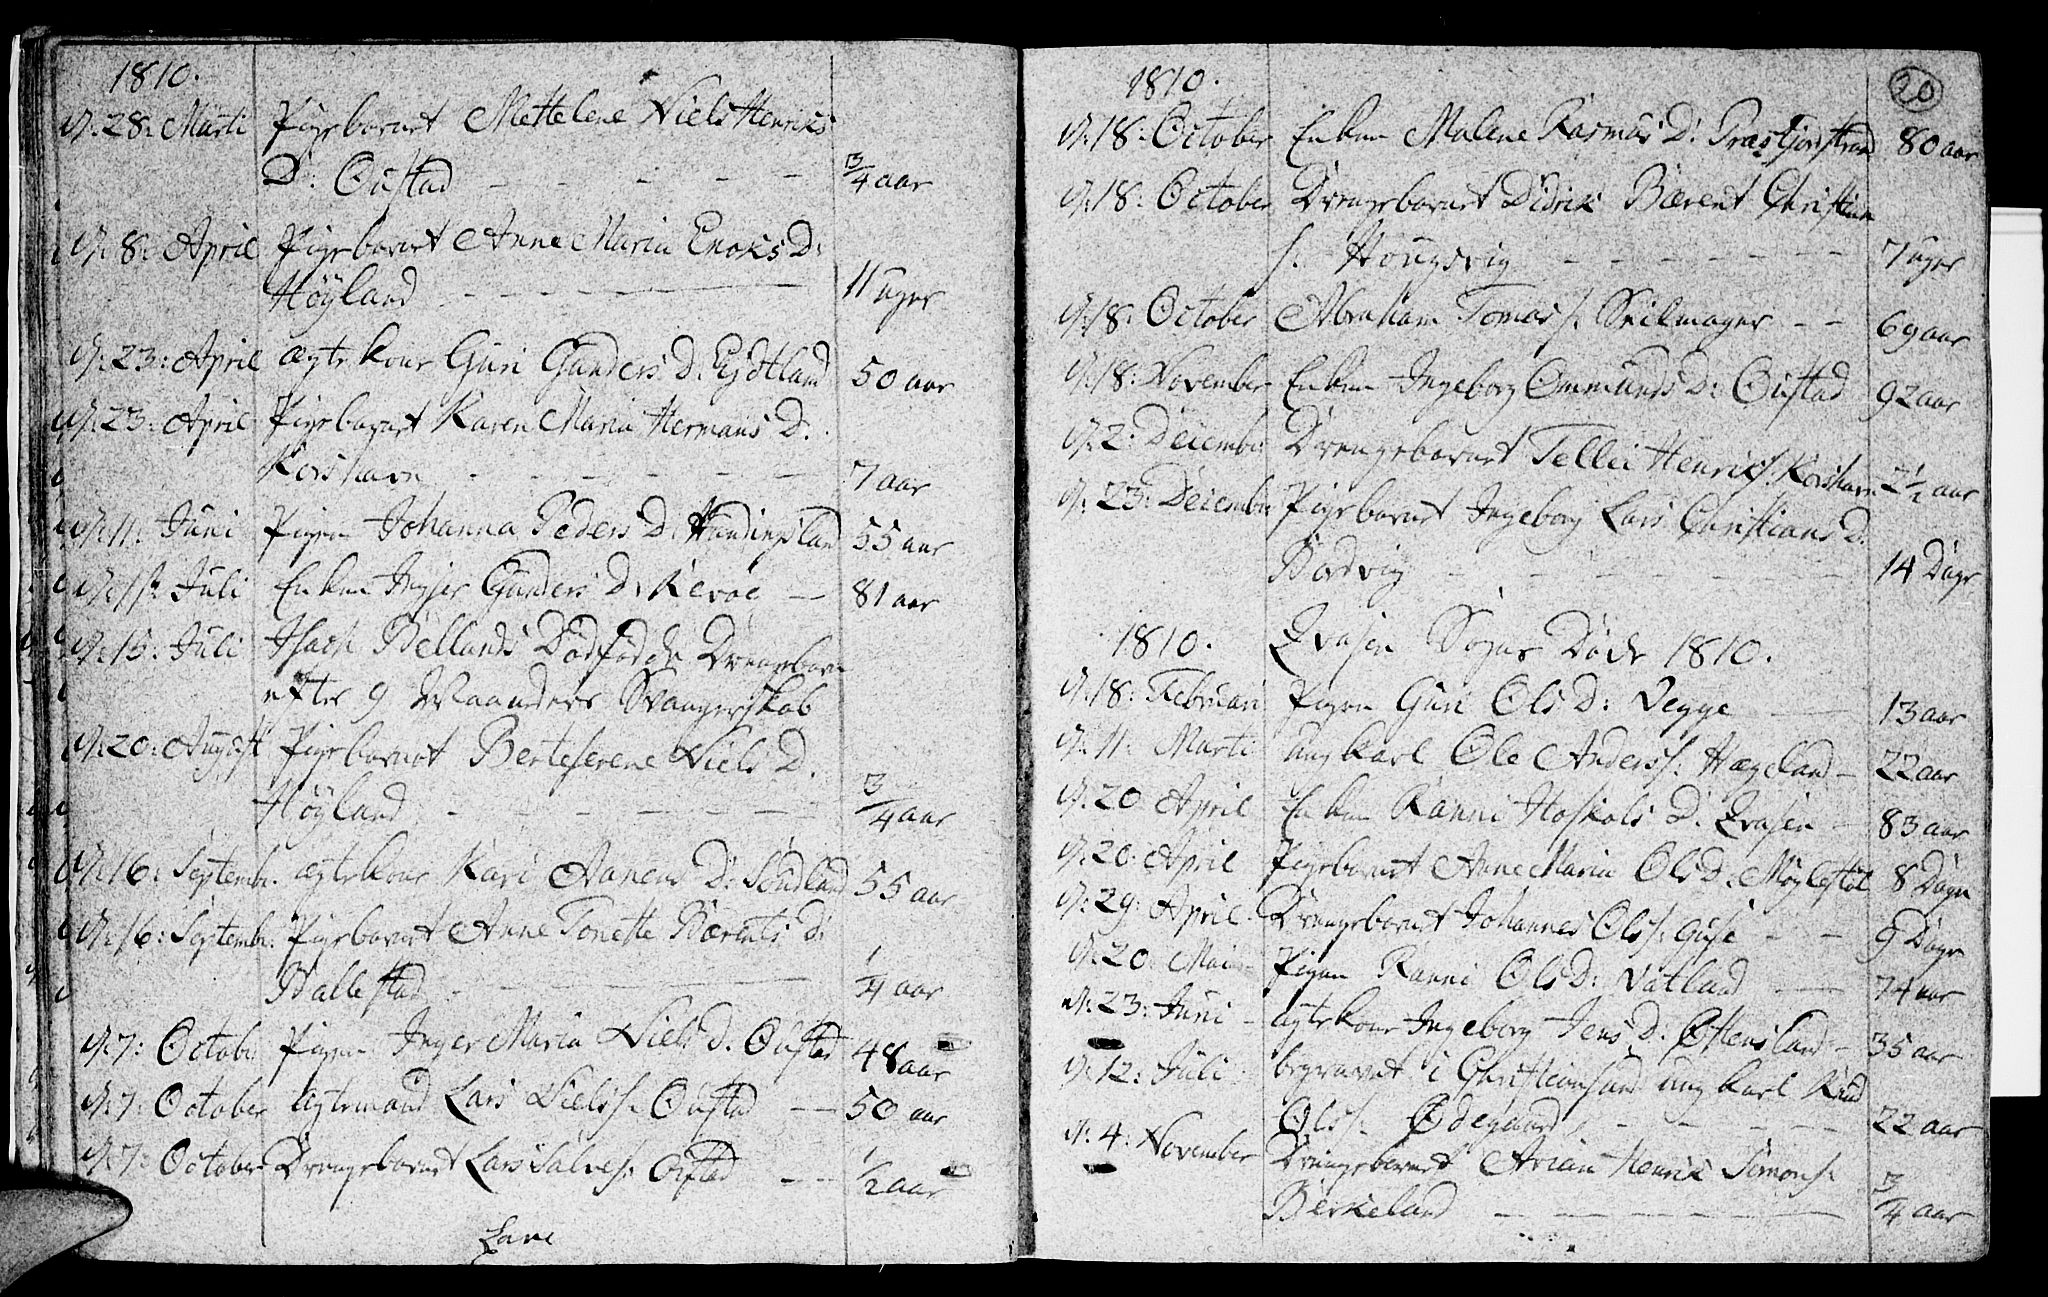 1810.
d: 28: Marti Pigebarnet Mettelene Niels Henriks
D: Oustad 3/4 aar
d: 8: April Pigebarnet Anne Maria Enoks D:
Höyland 11 uger
d: 23: April ægte kone Guri Gunders D. Eydtland 50 aar
d: 23: April Pigebarnet Karen Maria Hermans D.
Korshavn 7 aar
d: 11: Juni Pigen Johanna Peders D. 55 aar
d: 1ste Juli Enken Inger Gunders D. 81 aar
d: 15: Juli Isach Bellands Dödfödde Drengebarn
efter 9 Maaneders Svangerskab
d: 20: August Pigebarnet Berteserene Niels D.
Höyland 3/4 aar
d: 16: Septembr. ægtekone Kari Aanens D: Sundland 55 aar
d: 16: Septembr. Pigebarnet Anne Tonette Bærents D:
Ballestad 1/4 aar
d: 7: Octobr Pigen Inger Maria Niels D. Oustad 48 aar
d: 7: October ægtemand Lars Niels s. Oustad 50 aar
d: 7: October Drengebarnet Lars Salves s. Oustad 1/2 aar
Lane
20
1810.
d: 18: October Enken Malene Rasmus D: 80 aar
d: 18: October Drengebarnet Didrik Bærent Christian
s. Hougsvig 7 uger
d: 18: October Abraham Tomas s. Seilmager 69 aar
d: 18: November Enken Ingeborg Ommunds D: Oustad 92 aar
d: 2: Decembr Drengebarnet Tellei Henriks s. Korshavn 2 1/2 aar
d: 23: Decembr Pigebarnet Ingeborg Lars Christians D.
Bordvig 14 Dage
1810. Evasen Sogns Döde 1810.
d: 18: Februari Pigen Guri Ols D: Vegge 13 aar
d: 11: Marti ung karl Ole Anders s. Hægeland 22 aar
d: 20 April Enken Ranni Hoskols D: Evasen 83 aar
d: 20: April Pigebarnet Anne Maria Ols D. Möglestöl 8 Dage
d: 29: April Drengebarnet Johannes Ols s. 9 Dage
d: 20: Mai Pigen Ranni Ols D: Vatland 74 aar
d: 23: Juni ægtekone Ingeborg Jens D: Ottersland 35 aar
d: 12: Juli begravet i Christiansand ung karl Knud
Ols s. Ødegaard 22 aar
d: 4: November Drengebarnet Arian Henrik Simon s.
Birkeland 3/4 aar